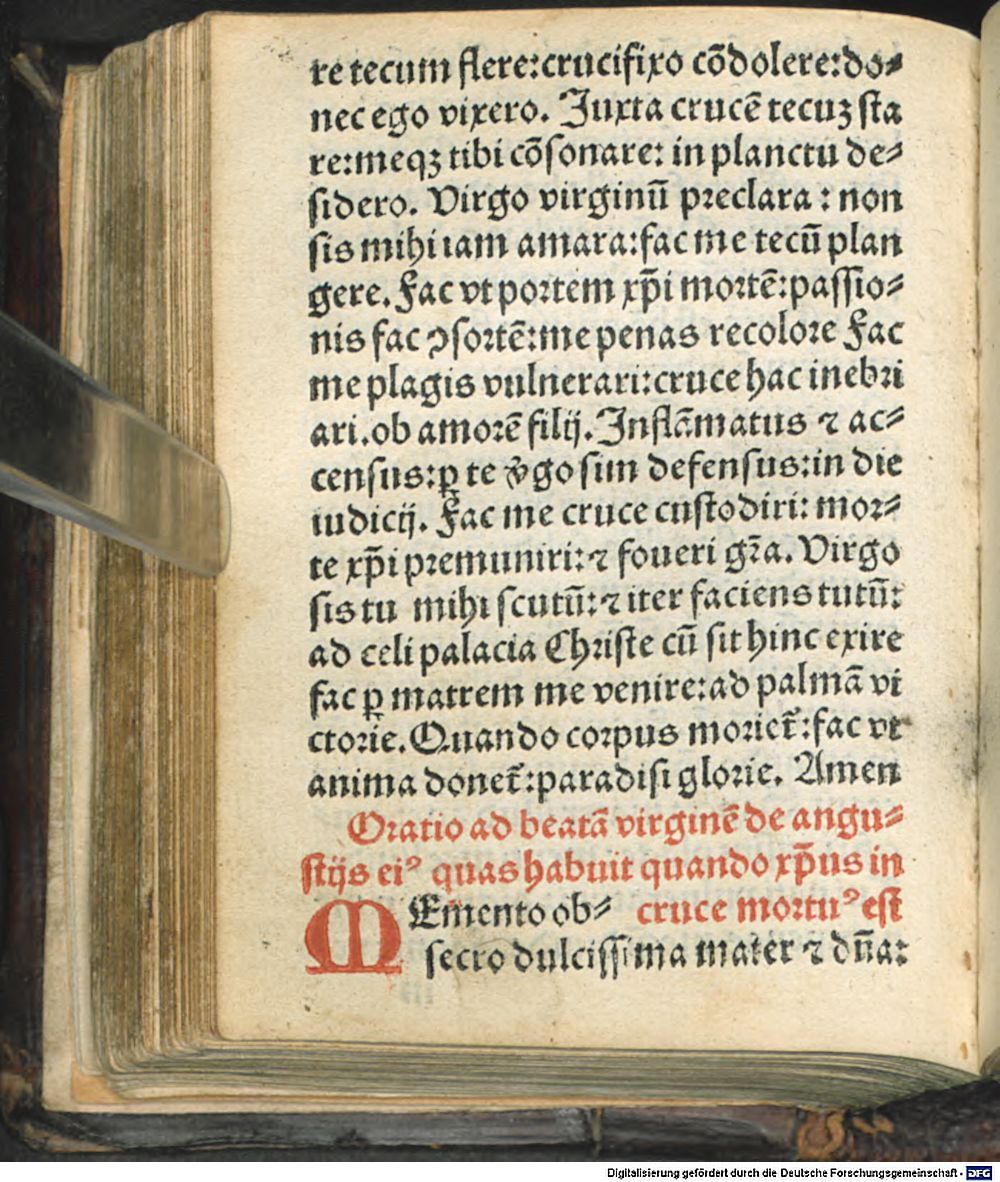 re tecum flere:crucifixo cõdolere:do⸗
nec ego vixero. Juxta crucẽ tecuꝫ sta
re:meqꝫ tibi cõsonare: in planctu de⸗
sidero. Virgo virginũ preclara : non
sis mihi iam amara:fac me tecũ plan
gere. Fac vt portem xp̃i mortẽ:passio⸗
nis fac ꝯsortẽ:me penas recolore Fac
me plagis vulnerari:cruce hac inebri
ari.ob amorẽ filij. Inflãmatus ⁊ ac⸗
census:ꝑ te v̾go sim defensus:in die
iudicij. Fac me cruce custodiri: mor⸗
te xp̃i premuniri:⁊ foueri gr̃a. Virgo
sis tu mihi scutũ:⁊ iter faciens tutũ:
ad celi palacia Christe cũ sit hinc exire
fac ꝑ matrem me venire:ad palmã vi
ctorie. Quando corpus moriet̃:fac vt
anima donet̃:paradisi glorie. Amen
Oratio ad beatã virginẽ de angu⸗
stijs eiꝰ quas habuit quando xp̃us in
MEmento ob⸗ cruce mortuꝰ est
secro dulcissima mater ⁊ dña:
Digitalisierung gefördert durch die Deutsche Forschungsgemeinschaft - DFG